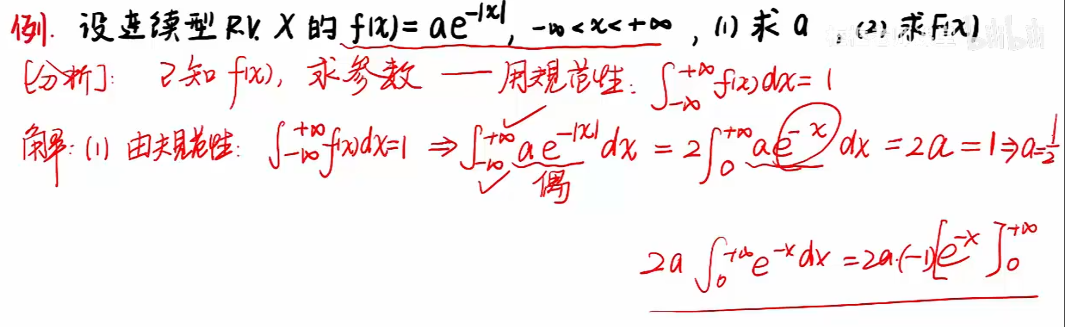 例. 设连续型 R.V. X 的 f(x)=ae^{-|x|}, -∞<x<+∞, (1) 求 a, (2) 求F(x)
[分析]: 已知 f(x), 求参数 — 用规范性: ∫_{-∞}^{+∞} f(x)dx=1
解: (1) 由规范性: ∫_{-∞}^{+∞} f(x)dx=1 ⇒ ∫_{-∞}^{+∞} ae^{-|x|} dx = 2∫_0^{+∞} ae^{-x} dx = 2a = 1 ⇒ a=1/2
偶
2a ∫_0^{+∞} e^{-x}dx = 2a·(-1)[e^{-x}]_0^{+∞}